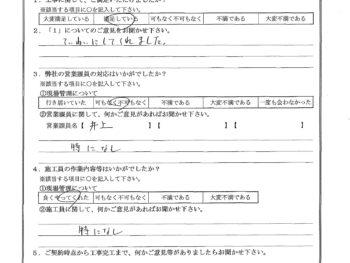 ※該当する項目に○を記入して下さい。
大変満足している 満足している 可もなく不可もなく 不満である 大変不満である
2．「1」についてのご意見をお聞かせ下さい。
ていねいにしてくれました。
3．弊社の営業課員の対応はいかがでしたか？
※該当する項目に○を記入して下さい。
①現場管理について
行き届いていた 可もなく不可もなく 不満である 大変不満である 一度も会わなかった
②営業課員に関して、何かご意見があればお聞かせ下さい。
営業課員名【 井上 】【 】【 】
特になし
4．施工員の作業内容等はいかがでしたか？
※該当する項目に○を記入して下さい。
①現場管理について
良くやってくれた 可もなく不可もなく 不満である 大変不満である
②施工員に関して、何かご意見があればお聞かせ下さい。
特になし
5．ご契約時点から工事完工まで、何かご意見等がありましたらお聞かせ下さい。